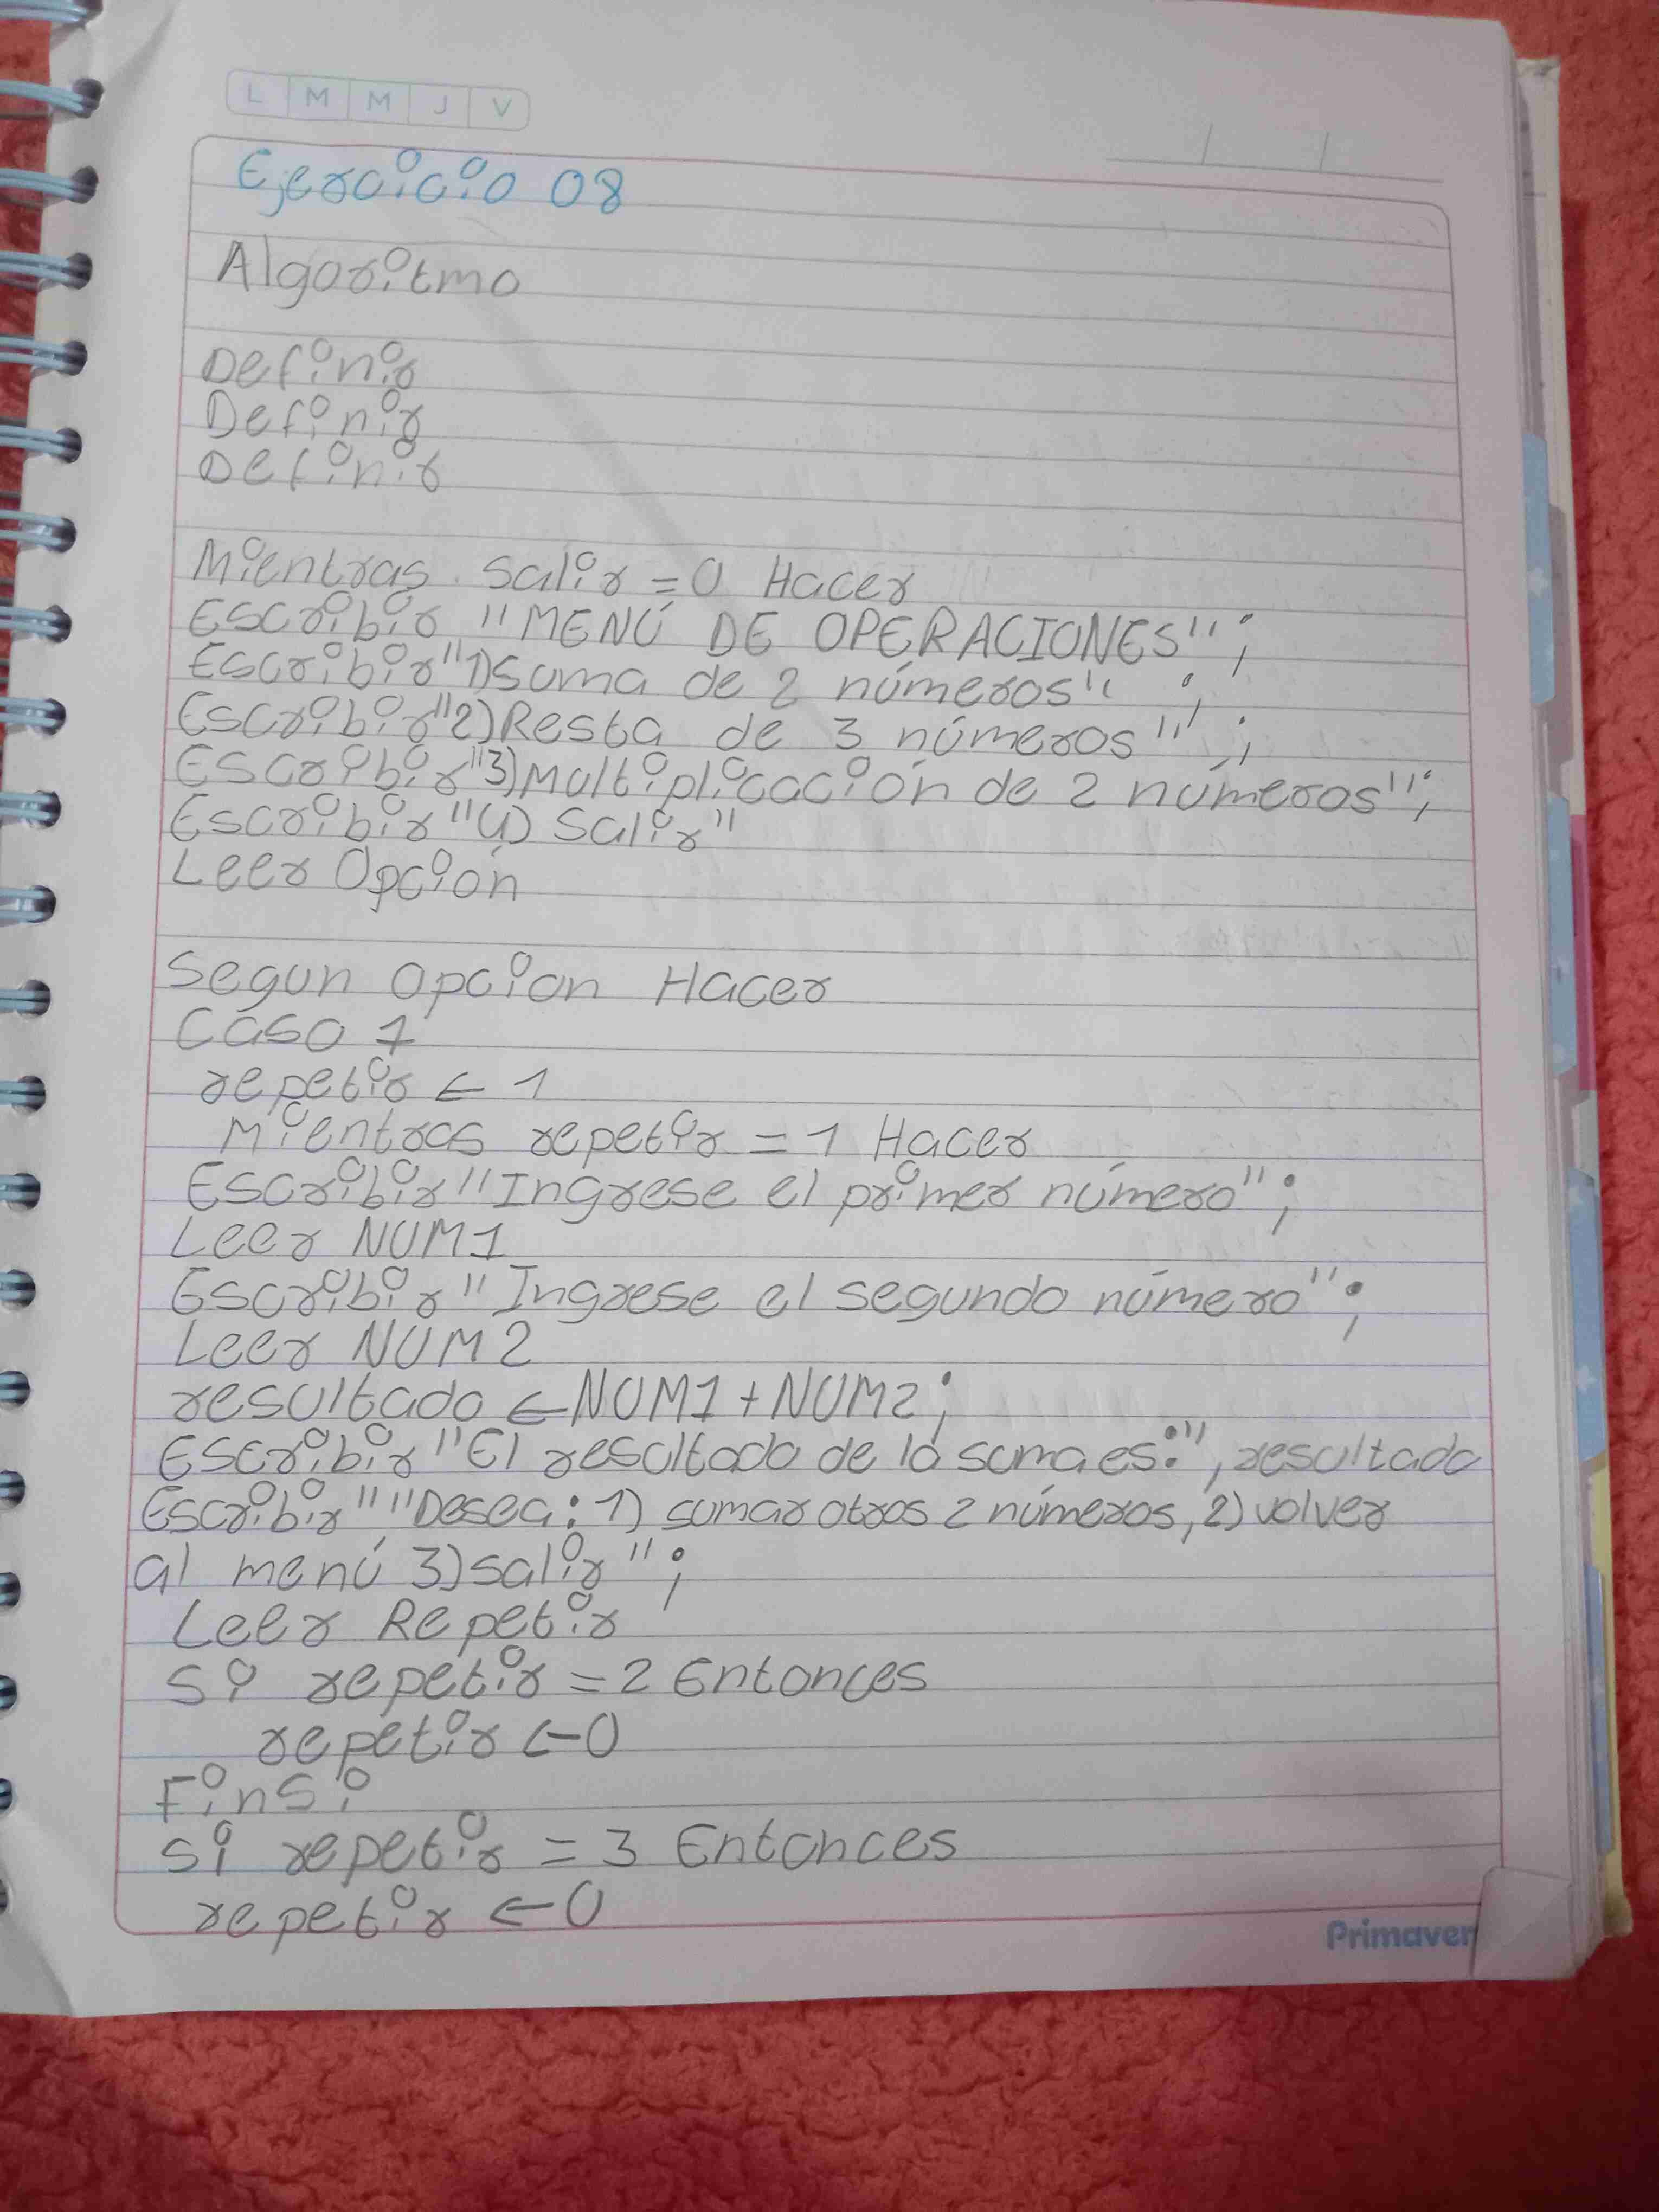 L M M J V
Ejercicio 08
Algoritmo
Definir
Definir
Definir
Mientras salir = 0 Hacer
Escribir "MENÚ DE OPERACIONES";
Escribir "1)Suma de 2 números" ;
Escribir "2)Resta de 3 números" ;
Escribir "3)Multiplicación de 2 números";
Escribir "4) Salir"
Leer Opción
Segun opcion Hacer
Caso 1
repetir ← 1
Mientras repetir = 1 Hacer
Escribir "Ingrese el primer número";
Leer NUM1
Escribir "Ingrese el segundo número";
Leer NUM2
resultado ← NUM1 + NUM2;
Escribir "El resultado de la suma es:", resultado
Escribir ""Desea: 1) sumar otros 2 números, 2) volver
al menú 3)salir";
Leer Repetir
Si repetir = 2 Entonces
repetir ← 0
FinSi
Si repetir = 3 Entonces
repetir ← 0
Primaver